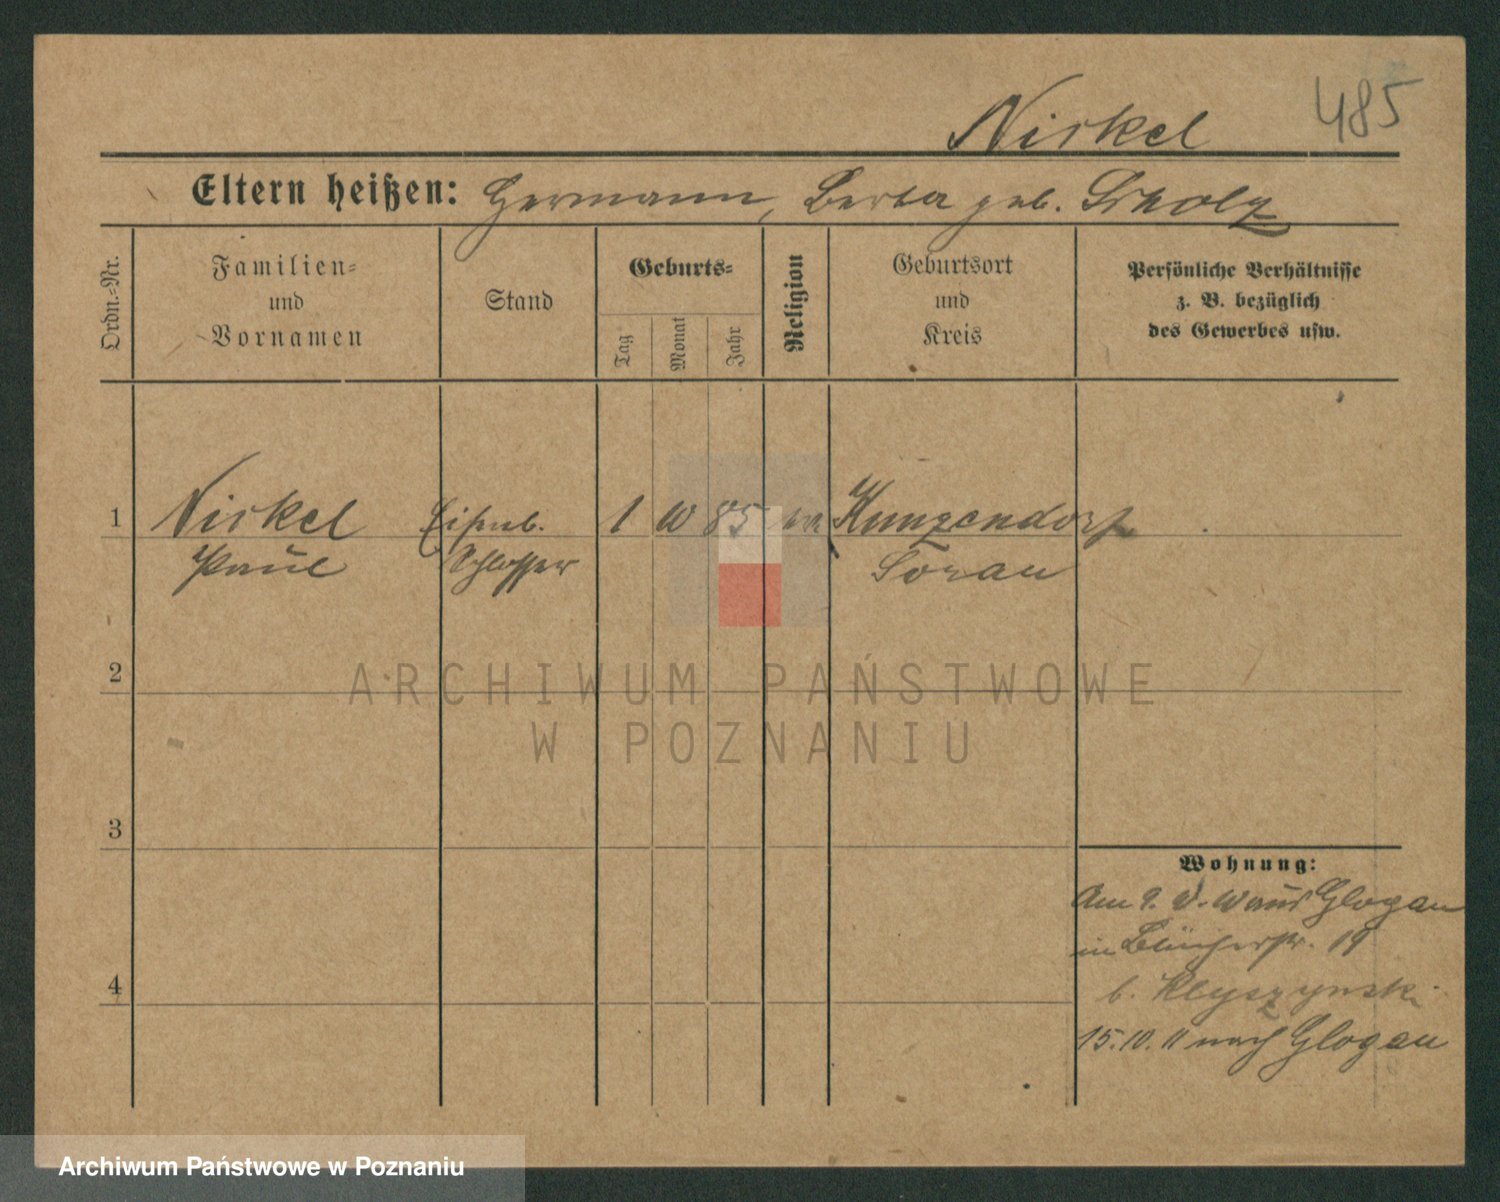 485
Nickel
Eltern heißen: Hermann, Berta geb. Scholz
Ordn.-Nr.
Familien-
und
Vornamen
Stand
Geburts-
Tag
Monat
Jahr
Religion
Geburtsort
und
Kreis
Persönliche Verhältnisse
z. B. bezüglich
des Gewerbes usw.
1 Nickel Eisenb. 1 10 85 Kunzendorf
Paul Schlosser Sorau
ARCHIWUM PAŃSTWOWE
2
W POZNANIU
3
Wohnung:
Am 9. aus Glogau
in Blücherstr. 19
4
b. Klyszynski
15.10.11 nach Glogau
Archiwum Państwowe w Poznaniu